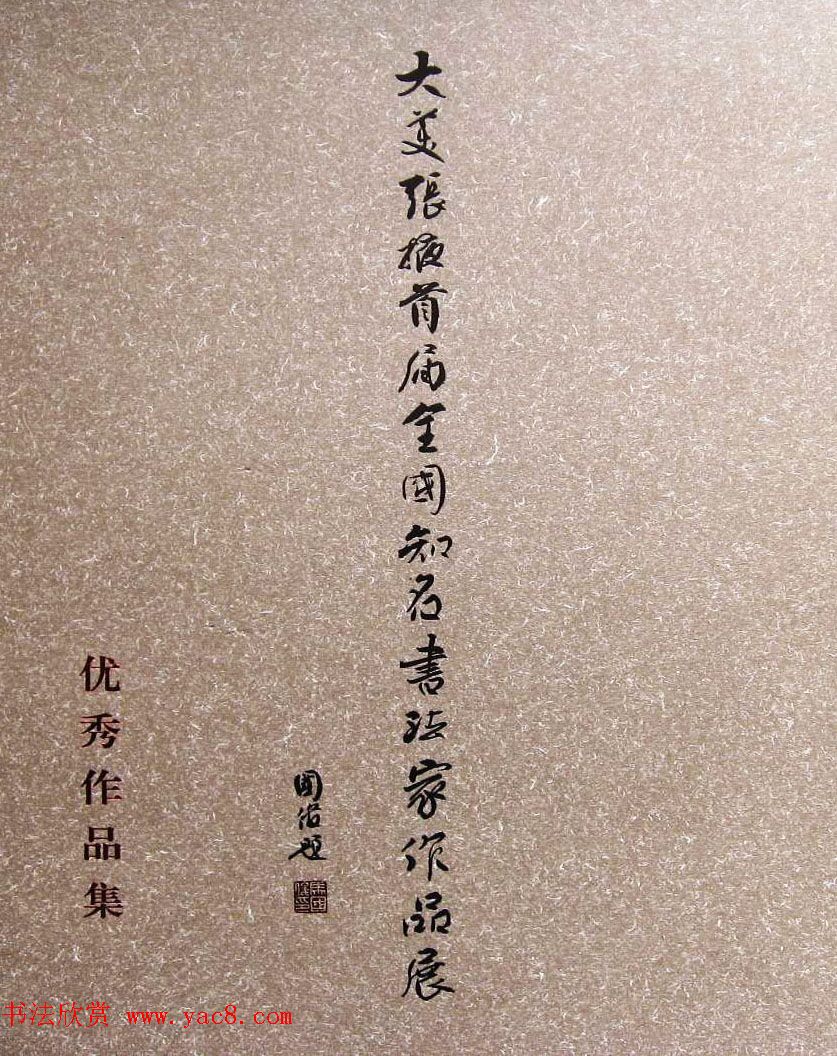 大美張掖首届全國知名書法家作品展
國俊題
优秀作品集
书法欣赏 www.yac8.com